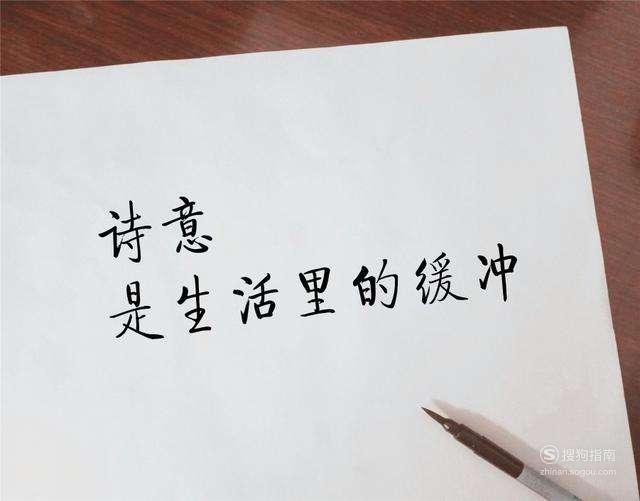 诗意
是生活里的缓冲
搜狗指南
zhinan.sogou.com